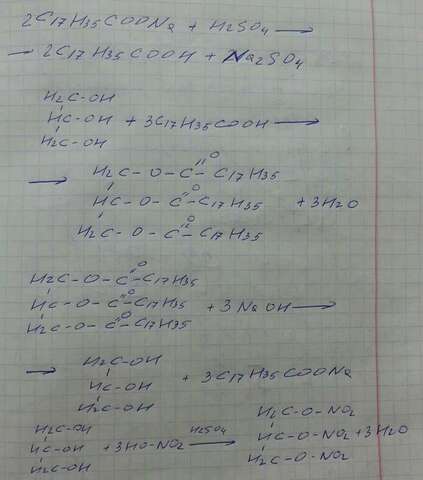 2C17H35COONa + H2SO4 ⟶
⟶ 2C17H35COOH + Na2SO4
H2C-OH
HC-OH + 3C17H35COOH ⟶
H2C-OH
O
⟶ H2C-O-C-C17H35
O
HC-O-C-C17H35 + 3H2O
O
H2C-O-C-C17H35
O
H2C-O-C-C17H35
O
HC-O-C-C17H35 + 3NaOH ⟶
O
H2C-O-C-C17H35
H2C-OH
⟶ HC-OH + 3C17H35COONa
H2C-OH
H2C-OH H2C-O-NO2
HC-OH + 3HO-NO2 H2SO4 ⟶ HC-O-NO2 + 3H2O
H2C-OH H2C-O-NO2